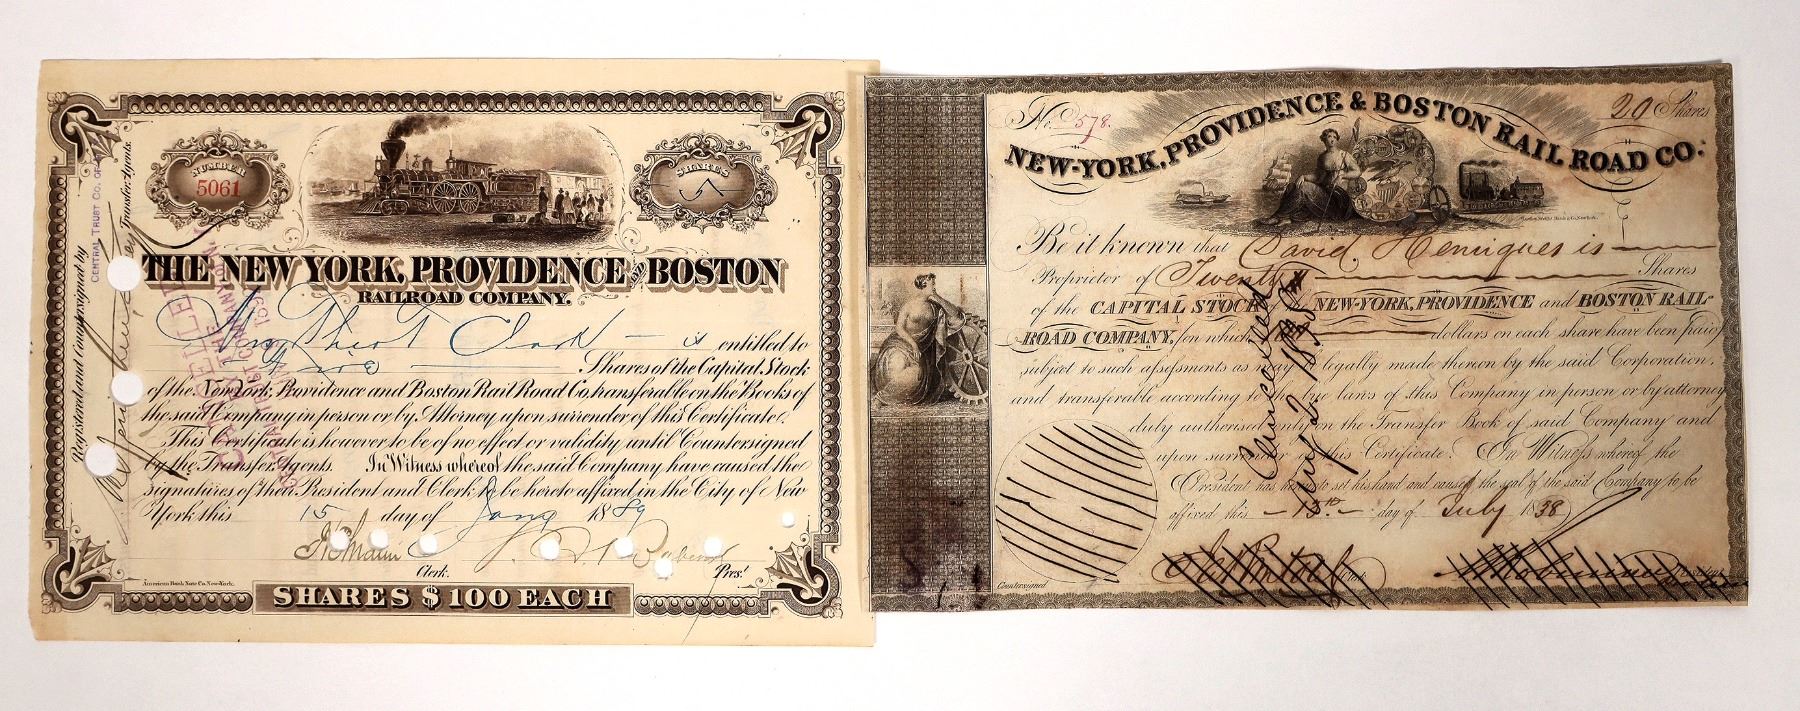 NUMBER
5061
SHARES
5
THE NEW YORK, PROVIDENCE AND BOSTON
RAILROAD COMPANY.
Wm Clark is entitled to
Shares of the Capital Stock
of the New York, Providence and Boston Rail Road Co, transferable on the Books of
the said Company in person or by Attorney upon surrender of this Certificate.
This Certificate is however to be of no effect or validity until Countersigned
by the Transfer Agents. In Witness whereof the said Company have caused the
signatures of their President and Clerk to be hereto affixed in the City of New
York this 15 day of Jany 1889
Clerk. Prest.
American Bank Note Co. New York.
SHARES $100 EACH
Registered and Countersigned by
CENTRAL TRUST CO. OF
Transfer Agents.
CANCELLED
No. 578.
20 Shares
NEW-YORK, PROVIDENCE & BOSTON RAIL ROAD CO.
Be it known that David Henriques is
Proprietor of Twenty Shares
of the CAPITAL STOCK NEW-YORK, PROVIDENCE and BOSTON RAIL-
ROAD COMPANY, for which dollars on each share have been paid
subject to such assessments as may legally made thereon by the said Corporation,
and transferable according to the bye laws of this Company in person or by attorney
duly authorised only on the Transfer Book of said Company and
upon surrender of this Certificate. In Witness whereof the
President has hereunto set his hand and caused the seal of the said Company to be
affixed this 13th day of July 1838
Countersigned
Clerk
President
Cancelled